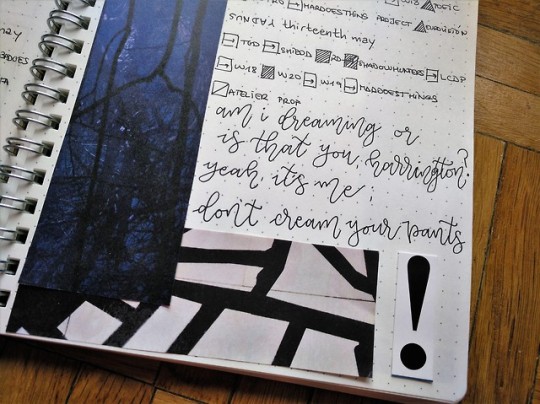 HARDDESTIENS PROJECT
SUNDAY thirteenth may
TGD SHIELD RD SHADOWHUNTERS LCDP
W18 W20 W19 MADDOESTHINGS
ATELIER PROP
am i dreaming or
is that you, harrington?
yeah, it's me;
don't cream your pants
!